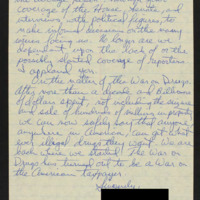 coverage of the House, Senate, and
interviews with political figures, to
make informed decisions on the many
issues facing us. No longer are we
dependent upon the lack of or the
possibly slanted coverage of reporters.
I applaud you.
On the matter of the War on Drugs.
After more than a decade, and billions
of dollars spent, not including the
and sale of hundreds of
we can now safely say that anyone
anywhere in America, can get what
ever illegal drugs they want. We are
back where we started. The War on
Drugs has turned out to be a War on
the American taxpayer.
Sincerely,